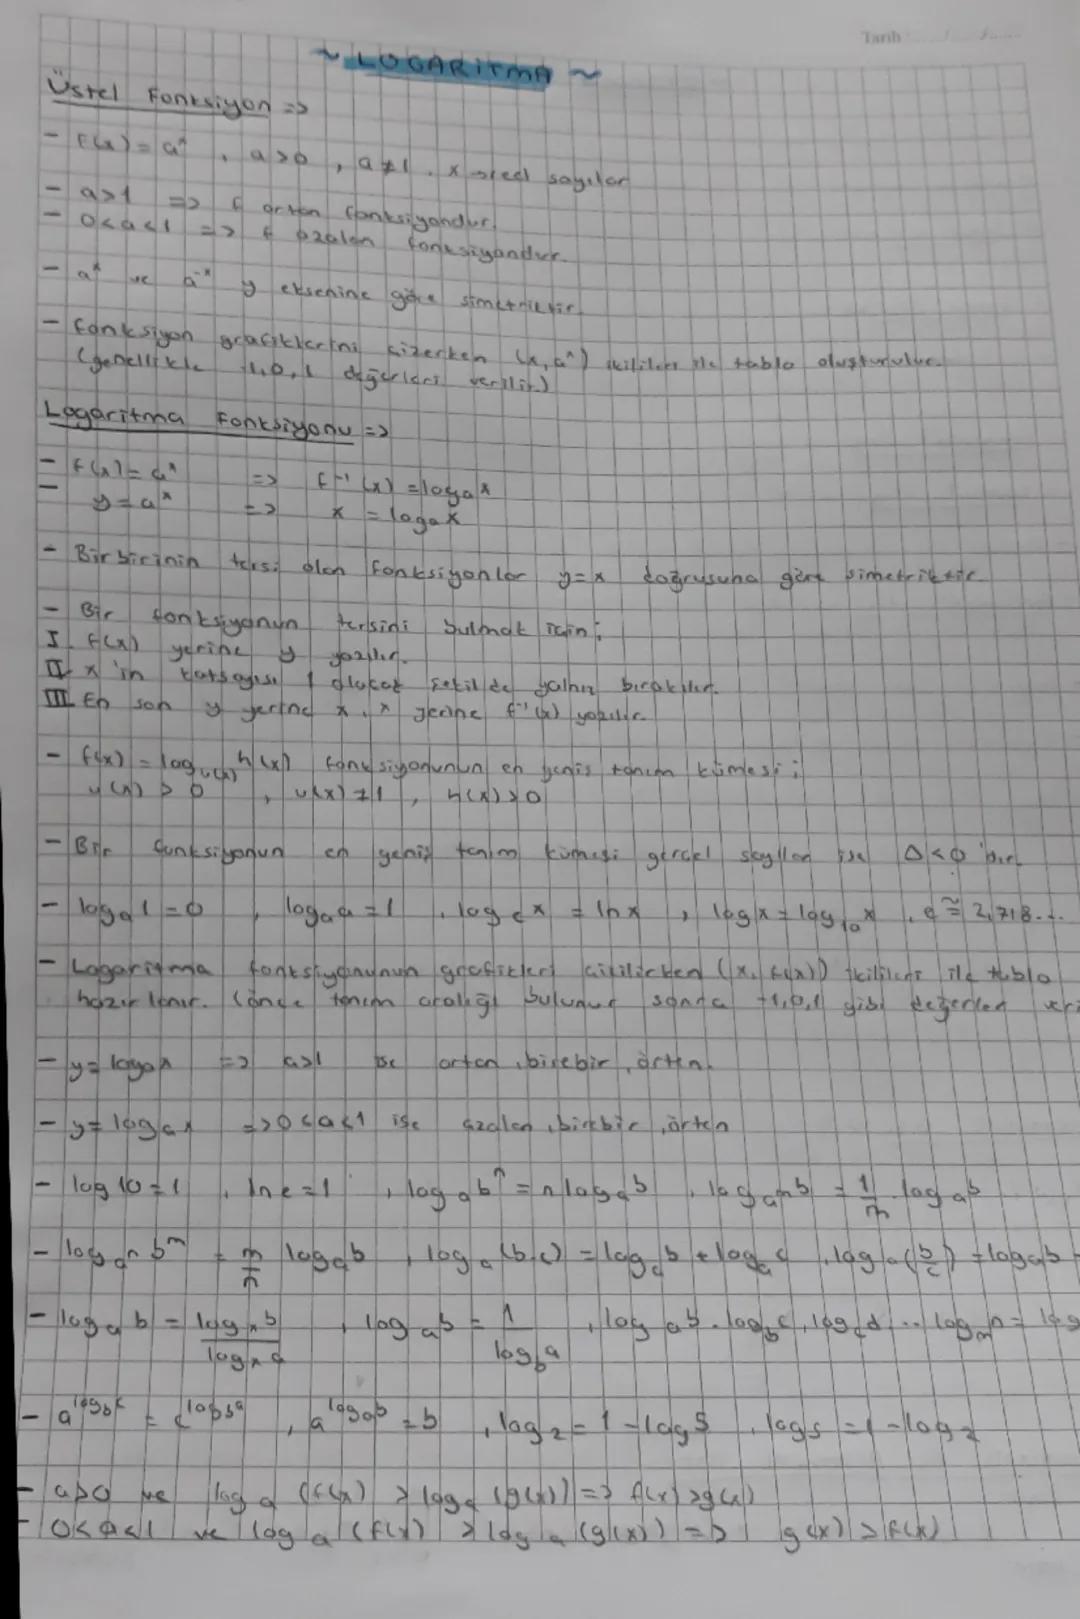 Tarih ..../..../....
~ LOGARİTMA ~
Üstel Fonksiyon =>
- f(x) = aˣ , a>0 , a≠1 . x → reel sayılar
- a>1 => f artan fonksiyondur.
- 0<a<1 => f azalan fonksiyondur.
- aˣ ve a⁻ˣ y eksenine göre simetriktir.
- fonksiyon grafiklerini çizerken (x, aˣ) ikilileri ile tablo oluşturulur.
(genellikle -1, 0, 1 değerleri verilir)
Logaritma Fonksiyonu =>
- f(x) = aˣ => f⁻¹(x) = logₐx
- y = aˣ => x = logₐx
- Birbirinin tersi olan fonksiyonlar y=x doğrusuna göre simetriktir.
- Bir fonksiyonun tersini bulmak için;
I. f(x) yerine y yazılır.
II x'in katsayısı 1 olacak şekilde yalnız bırakılır.
III En son y yerine x, x yerine f⁻¹(x) yazılır.
- f(x) = log_u(x) h(x) fonksiyonunun en geniş tanım kümesi;
u(x) > 0 , u(x) ≠ 1 , h(x) > 0
- Bir fonksiyonun en geniş tanım kümesi gerçel sayılar ise Δ<0 'dır.
- logₐ1 = 0 , logₐa = 1 , logₑx = lnx , logx = log₁₀x , e ≅ 2,718...
- Logaritma fonksiyonunun grafikleri çizilirken (x, f(x)) ikilileri ile tablo
hazırlanır. (önce tanım aralığı bulunur sonra -1,0,1 gibi değerler veri
- y = logₐx => a>1 ise artan, birebir, örten.
- y = logₐx => 0<a<1 ise azalan, birebir, örten
- log 10 = 1 , ln e = 1 , logₐbⁿ = n logₐb , log_aᵐ b = 1/m . logₐb
- log_aⁿ bᵐ = m/n logₐb , logₐ(b.c) = logₐb + logₐc , logₐ(b/c) = logₐb -
- logₐb = logₓb / logₓa , logₐb = 1 / log_b a , logₐb . log_b c . log_c d ... log_m n = log
- a^(log_b c) = c^(log_b a) , a^(logₐb) = b , log2 = 1 - log5 , log5 = 1 - log2
- a>0 ve logₐ(f(x)) > logₐ(g(x)) => f(x) > g(x)
- 0<a<1 ve logₐ(f(x)) > logₐ(g(x)) => g(x) > f(x)